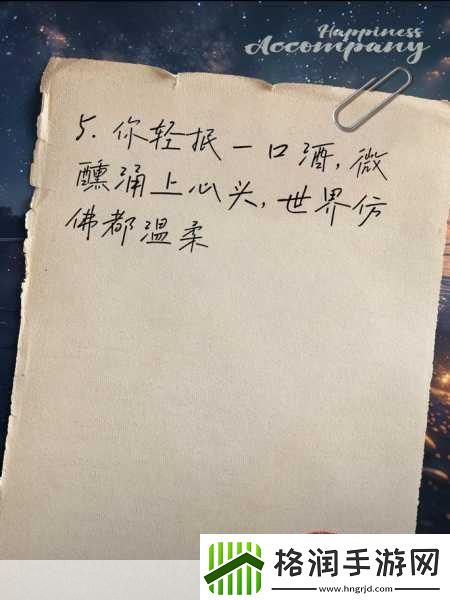 Happiness
Accompany
5. 你轻抿一口酒, 微
醺涌上心头, 世界仿
佛都温柔
格润手游网
www.hngrjd.com